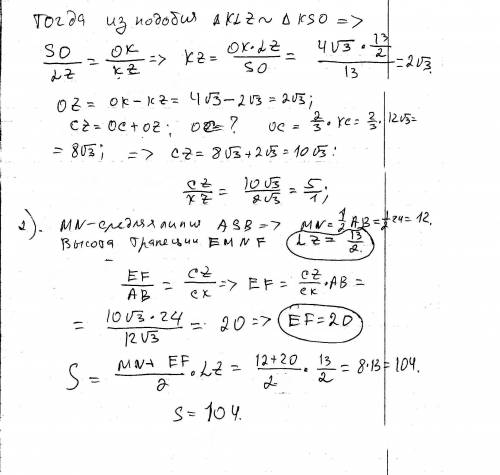 Тогда из подобия ΔKLZ ~ ΔKSO =>
SO/LZ = OK/KZ => KZ = OK·LZ/SO = 4√3 · 13/2 / 13 = 2√3.
OZ = OK - KZ = 4√3 - 2√3 = 2√3;
CZ = OC + OZ; OC = ? OC = 2/3 · KC = 2/3 · 12√3 =
= 8√3; => CZ = 8√3 + 2√3 = 10√3:
CZ/KZ = 10√3/2√3 = 5/1;
2). MN - средняя линия ASB => MN = 1/2 AB = 1/2 24 = 12.
Высота трапеции EMNF LZ = 13/2.
EF/AB = CZ/CK => EF = CZ/CK · AB =
= 10√3 · 24 / 12√3 = 20 => EF = 20
S = MN + EF / 2 · LZ = 12+20 / 2 · 13/2 = 8·13 = 104.
S = 104.